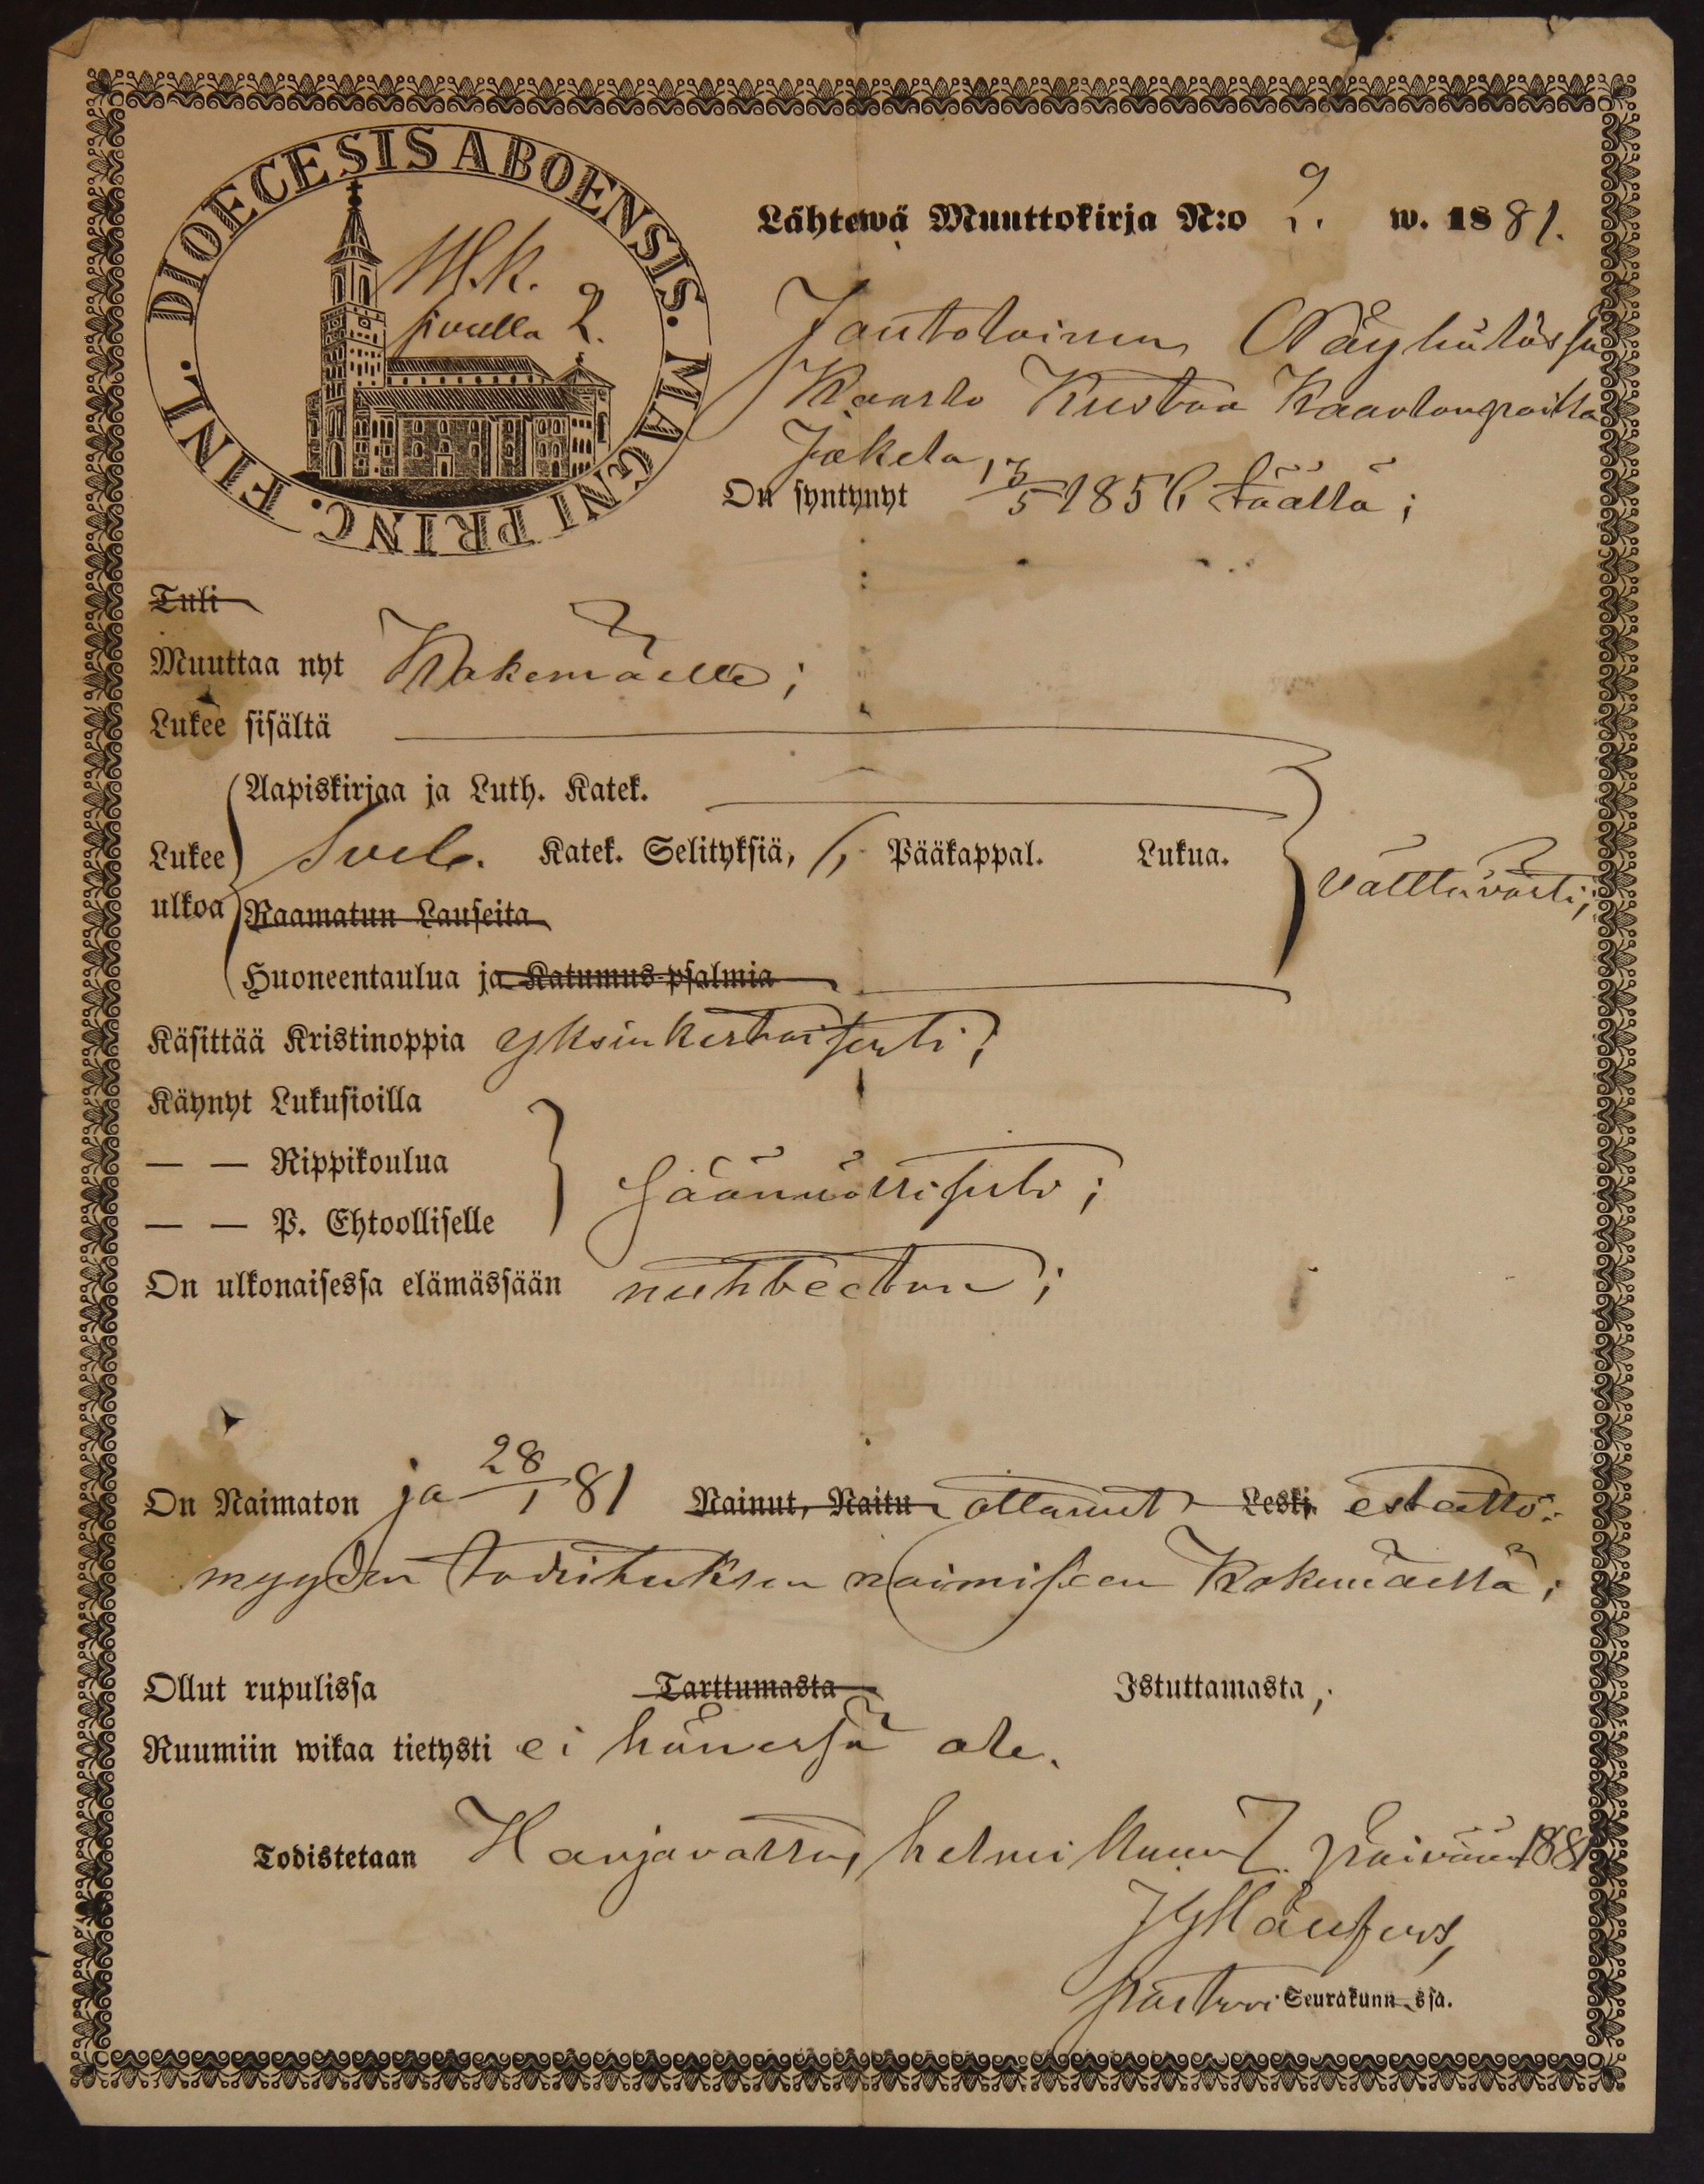 DIOECESIS ABOENSIS. MAGNI PRINC. FINL.
M.k.
sivulla 2.
Lähtewä Muuttokirja N:o 2. w. 1881.
Kaarlo Kustaa Kaarlonpoika
Jokela,
On syntynyt 13/5 1856 täällä;
Tuli
Muuttaa nyt Kokemäelle;
Lukee sisältä
Aapiskirjaa ja Luth. Katek.
Lukee ulkoa Sveb. Katek. Selityksiä, 6, Pääkappal. Lukua. välttävästi;
Raamatun Lauseita
Huoneentaulua ja Katumus-psalmia
Käsittää Kristinoppia yksinkertaisesti;
Käynyt Lukusioilla
— — Rippikoulua säännöllisesti;
— — P. Ehtoolliselle
On ulkonaisessa elämässään nuhteeton;
On Naimaton ja 28/1 81 Nainut, Naitu ottanut Leski esteettö-
myyden todistuksen naimiseen Kokemäellä;
Ollut rupulissa Tarttumasta Istuttamasta,
Ruumiin wikaa tietysti ei hänessä ole.
Todistetaan Harjavallassa, helmikuun 7. päivänä 1881
pastori Seurakunn. ssa.